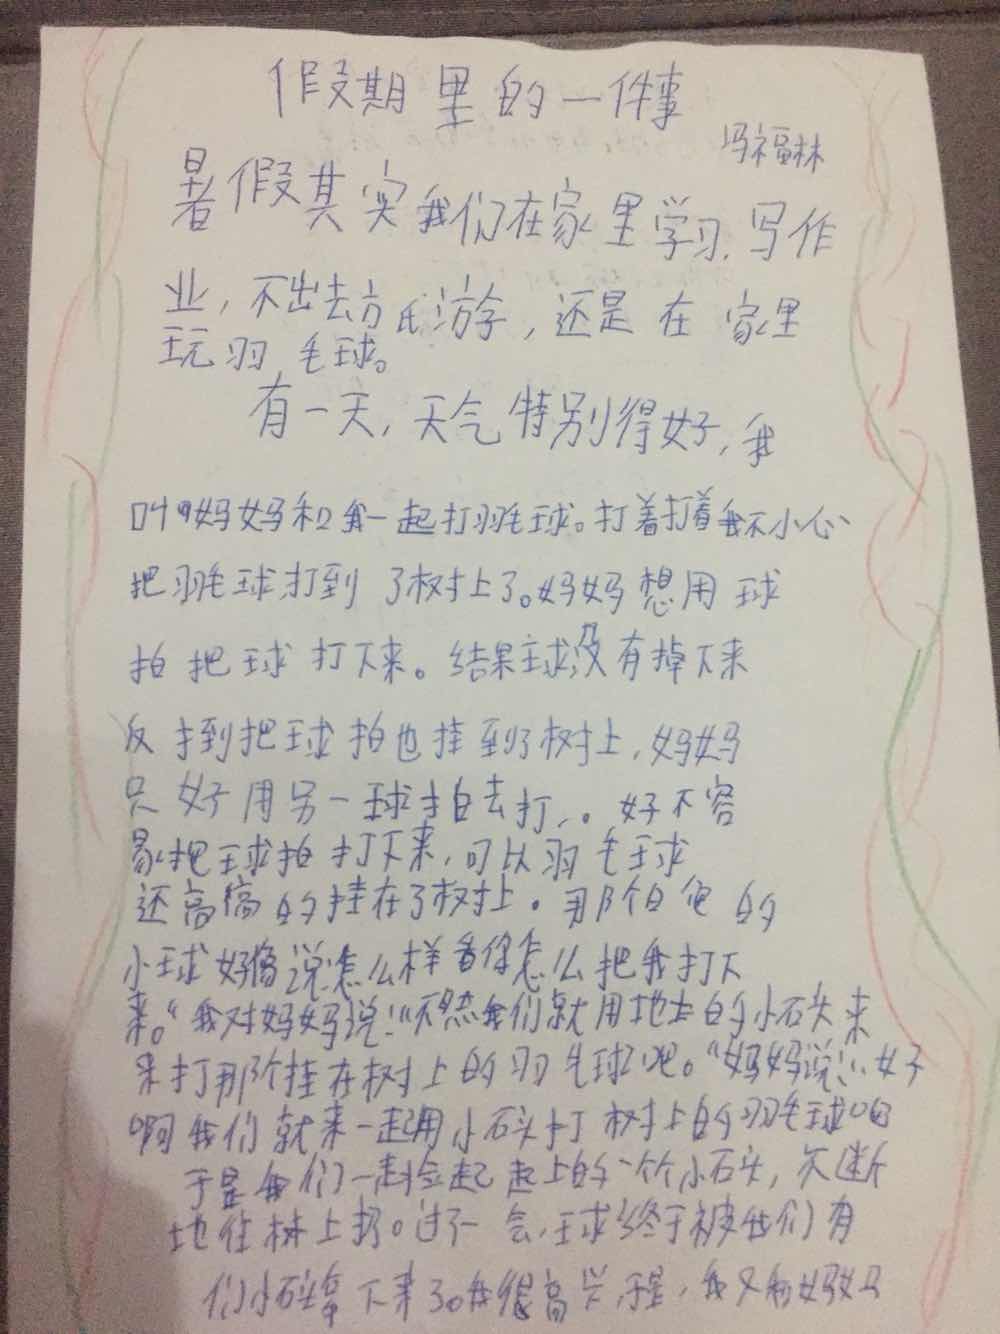 假期里的一件事
冯福林
暑假其实我们在家里学习,写作
业,不出去方氏游学,还是在家里
玩羽毛球。
有一天,天气特别得好,我
叫妈妈和我一起打羽毛球。打着打着我不小心
把羽毛球打到了树上了。妈妈想用球
拍把球打下来。结果球没有掉下来
反到把球拍也挂到了树上,妈妈
只好用另一球拍去打,。好不容
易把球拍打下来,可以羽毛球
还高高的挂在了树上。那个白色的
小球好像说:怎么样看你怎么把我打下
来。“我对妈妈说:“不然我们就用地上的小石头来
来打那个挂在树上的羽毛球吧。“妈妈说:“好
啊我们就来一起用小石头打树上的羽毛球吧
于是我们一起捡起起上的一个个小石头,不断
地往树上扔。过了一会,球终于被我们有
们小石 下来了。我很高兴,于是,我又和妈妈